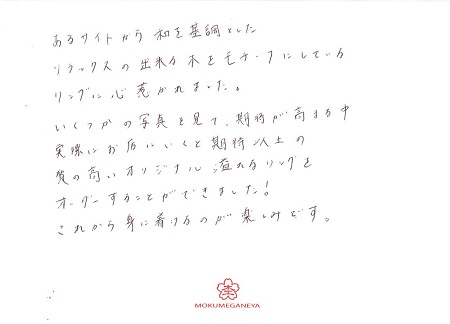 あるサイトから和を基調とした
リラックスの出来る木をモチーフにしている
リングに心惹かれました。
いくつかの写真を見て、期待が高まる中
実際にお店にいくと期待以上の
質の高いオリジナル溢れるリングを
オーダーすることができました!
これから身に着けるのが楽しみです。
MOKUMEGANEYA